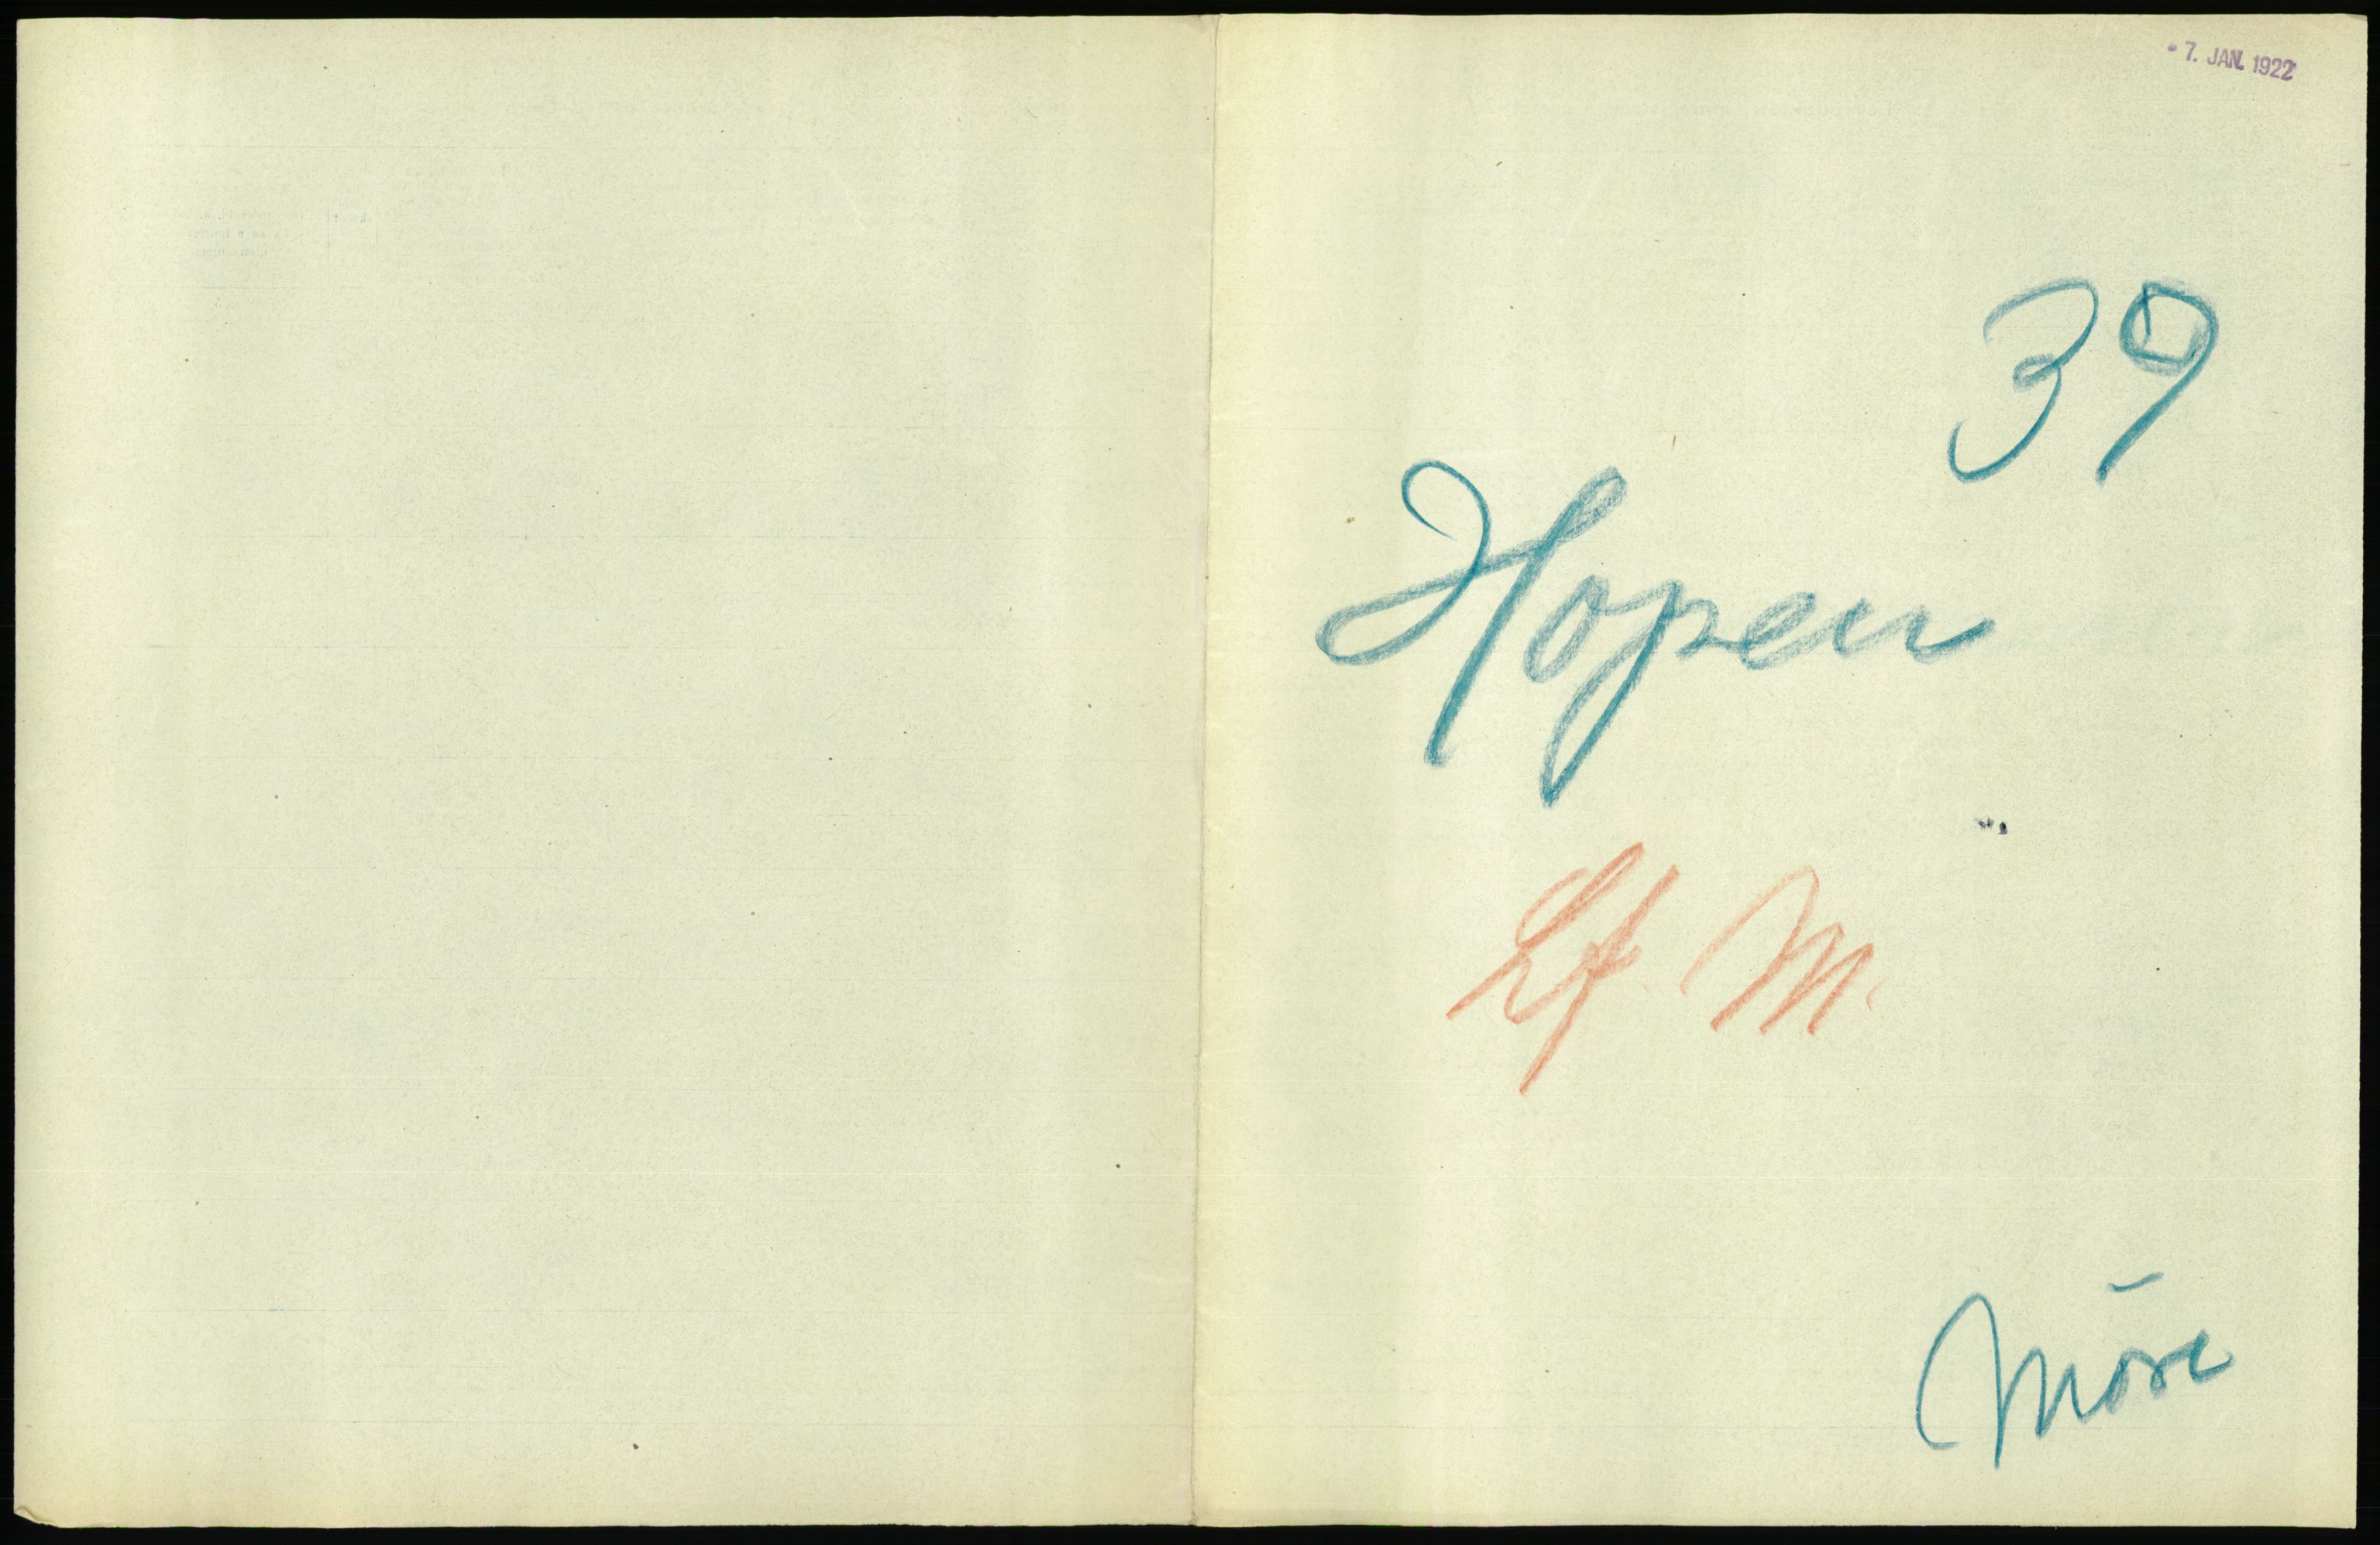 7. JAN. 1922
39
Hopen
Lf. M.
Möre